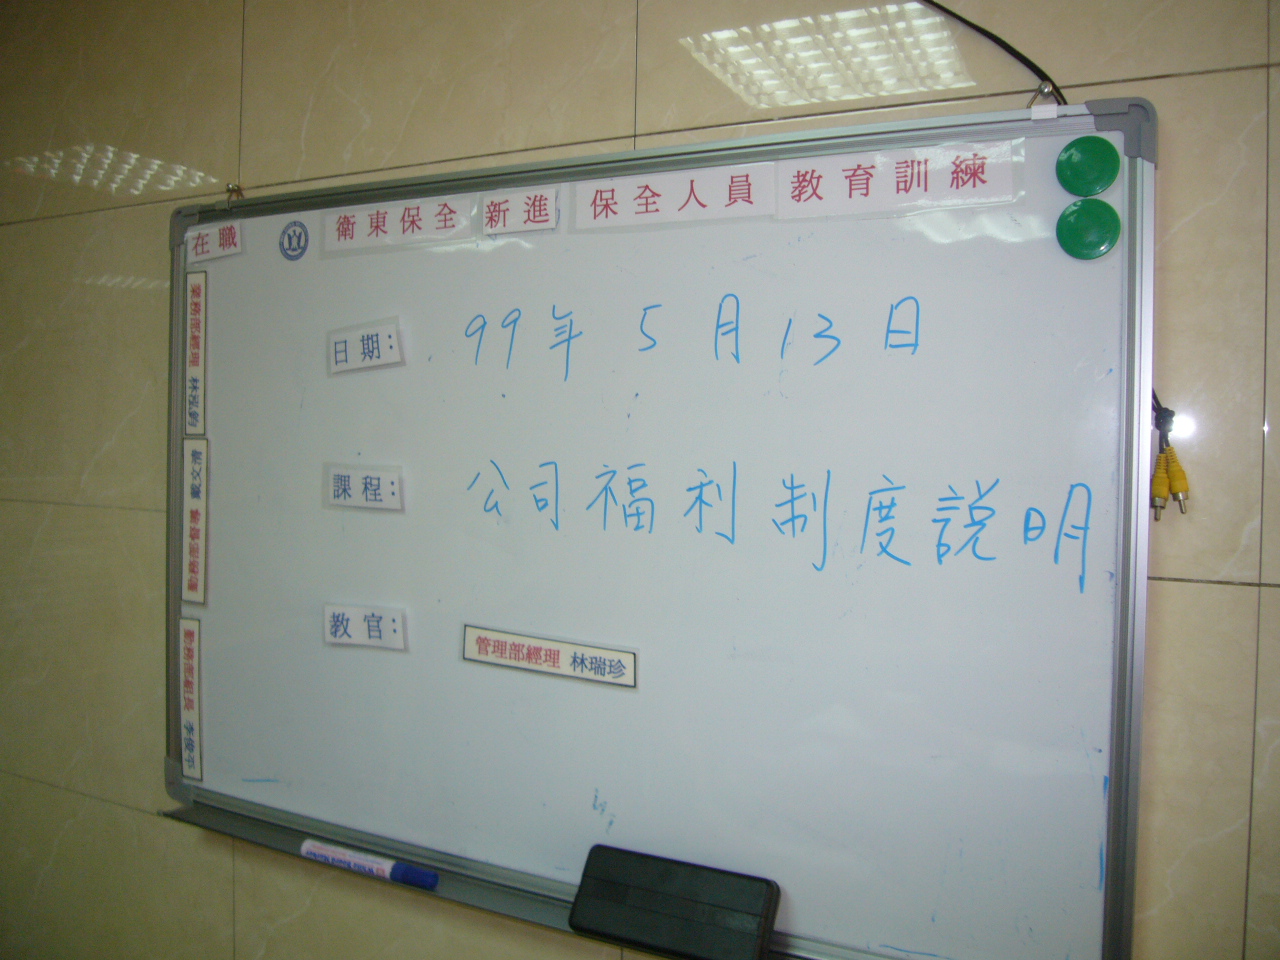 衛東保全 新進 保全人員 教育訓練
在職
日期: 99年 5月13日
課程: 公司福利制度說明
教官: 管理部經理 林瑞珍
業務部經理 林泓鈞
勤務部組長 李俊平
White Board Marker